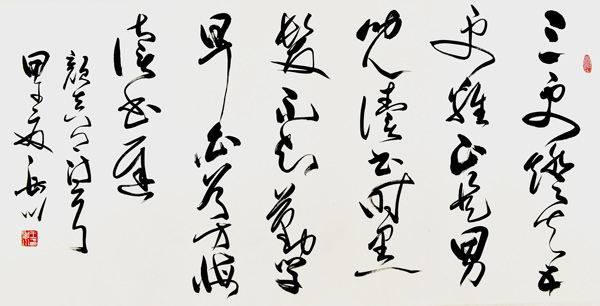 三更燈火五
更雞正是男
兒讀書時黑
髮不知勤学
早白首方悔
讀書遲
顏真卿詩句